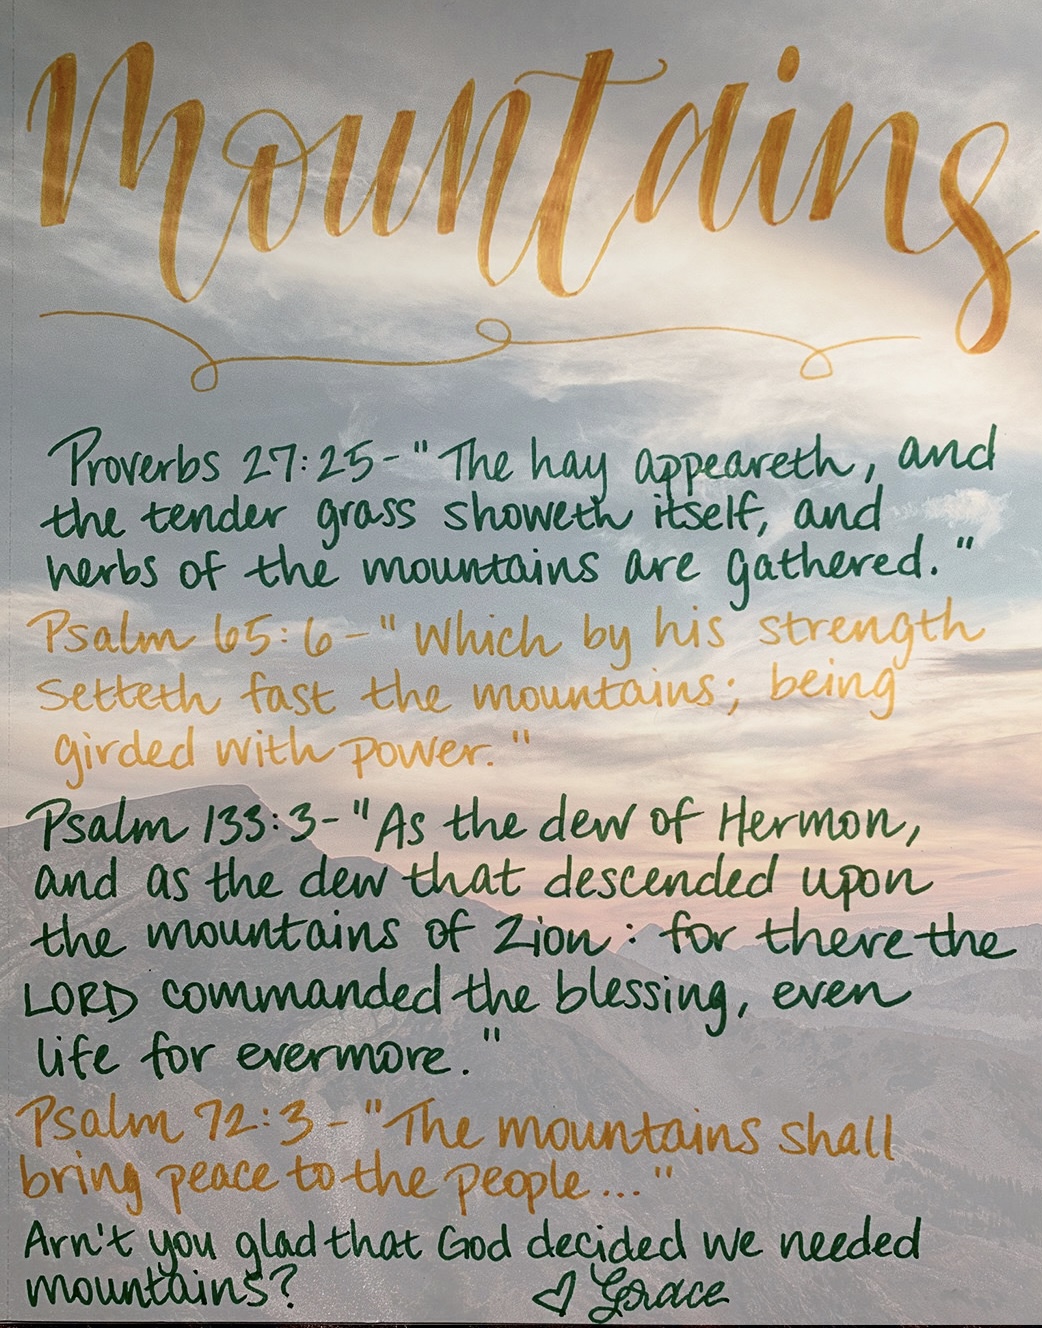 Mountains
Proverbs 27:25-"The hay appeareth, and
the tender grass showeth itself, and
herbs of the mountains are gathered."
Psalm 65:6-"Which by his strength
setteth fast the mountains; being
girded with power."
Psalm 133:3-"As the dew of Hermon,
and as the dew that descended upon
the mountains of Zion: for there the
LORD commanded the blessing, even
life for evermore."
Psalm 72:3-"The mountains shall
bring peace to the people..."
Arn't you glad that God decided we needed
mountains? ♡ Grace